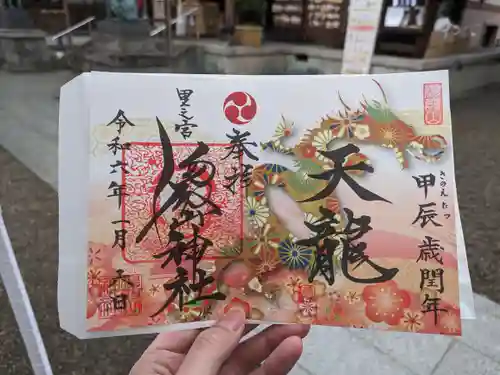 甲辰歳閏年
きのえたつ
天龍
奉拝
里之宮
湯殿山神社
令和六年一月六日